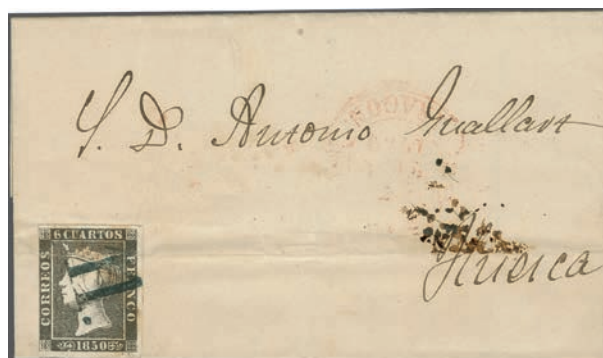 S. D. Antonio Guallart
Huesca
6 CUARTOS
CORREOS
FRANCO
1850